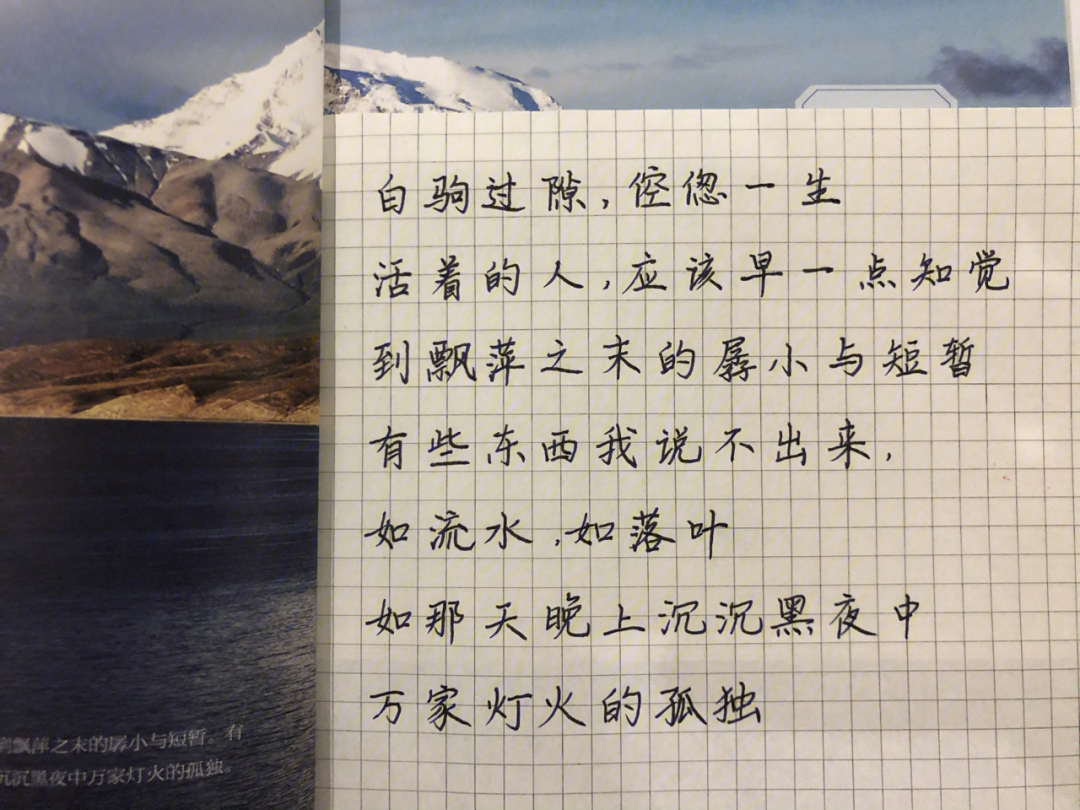 白驹过隙,倥偬一生
活着的人,应该早一点知觉
到飘萍之末的孱小与短暂
有些东西我说不出来,
如流水,如落叶
如那天晚上沉沉黑夜中
万家灯火的孤独
到飘萍之末的孱小与短暂。有
沉沉黑夜中万家灯火的孤独。